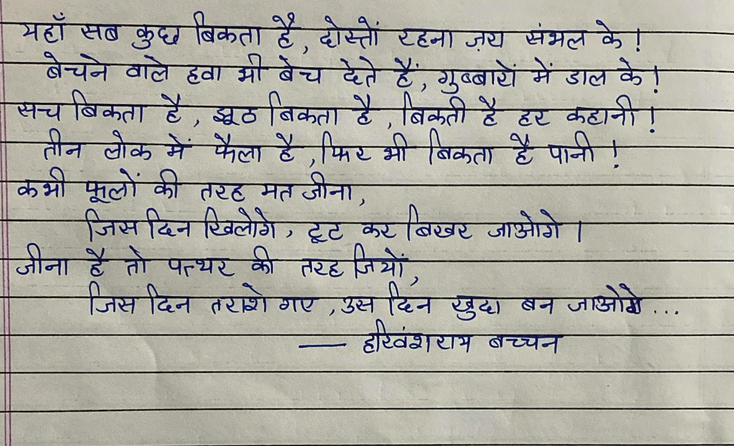 यहाँ सब कुछ बिकता है, दोस्तों रहना ज़रा संभल के !
बेचने वाले हवा भी बेच देते हैं, गुब्बारों में डाल के !
सच बिकता है, झूठ बिकता है, बिकती है हर कहानी !
तीन लोक में फैला है, फिर भी बिकता है पानी !
कभी फूलों की तरह मत जीना,
जिस दिन खिलोगे, टूट कर बिखर जाओगे ।
जीना है तो पत्थर की तरह जियों,
जिस दिन तराशे गए, उस दिन खुदा बन जाओगे ...
— हरिवंशराय बच्चन